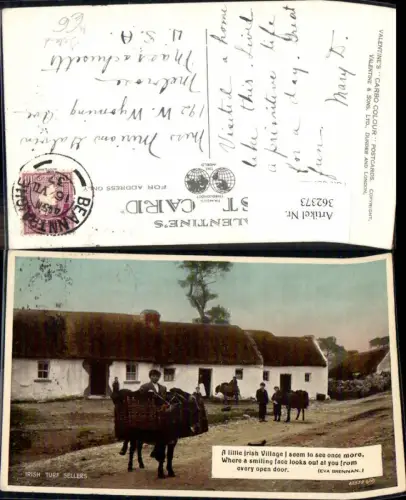 Visited a home
like this. Lived
a primitive life
for a day. Great
fun
Mary D.
Miss Miriam
192 W. Wyoming Ave
Melrose
Massachusetts
U.S.A.
VALENTINE'S
POST CARD
FOR ADDRESS ONLY
VALENTINE'S "CARBO COLOUR" POSTCARDS. COPYRIGHT,
VALENTINE & SONS, LTD., DUNDEE AND LONDON.
Artikel Nr.
362373
IRISH TURF SELLERS
A little Irish Village I seem to see once more,
Where a smiling face looks out at you from
every open door.
(EVA BRENNAN.)